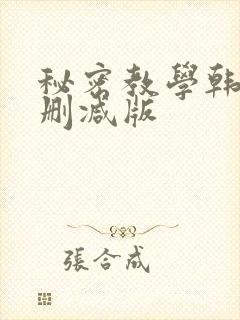 秘密教學韩
删减版
張合成